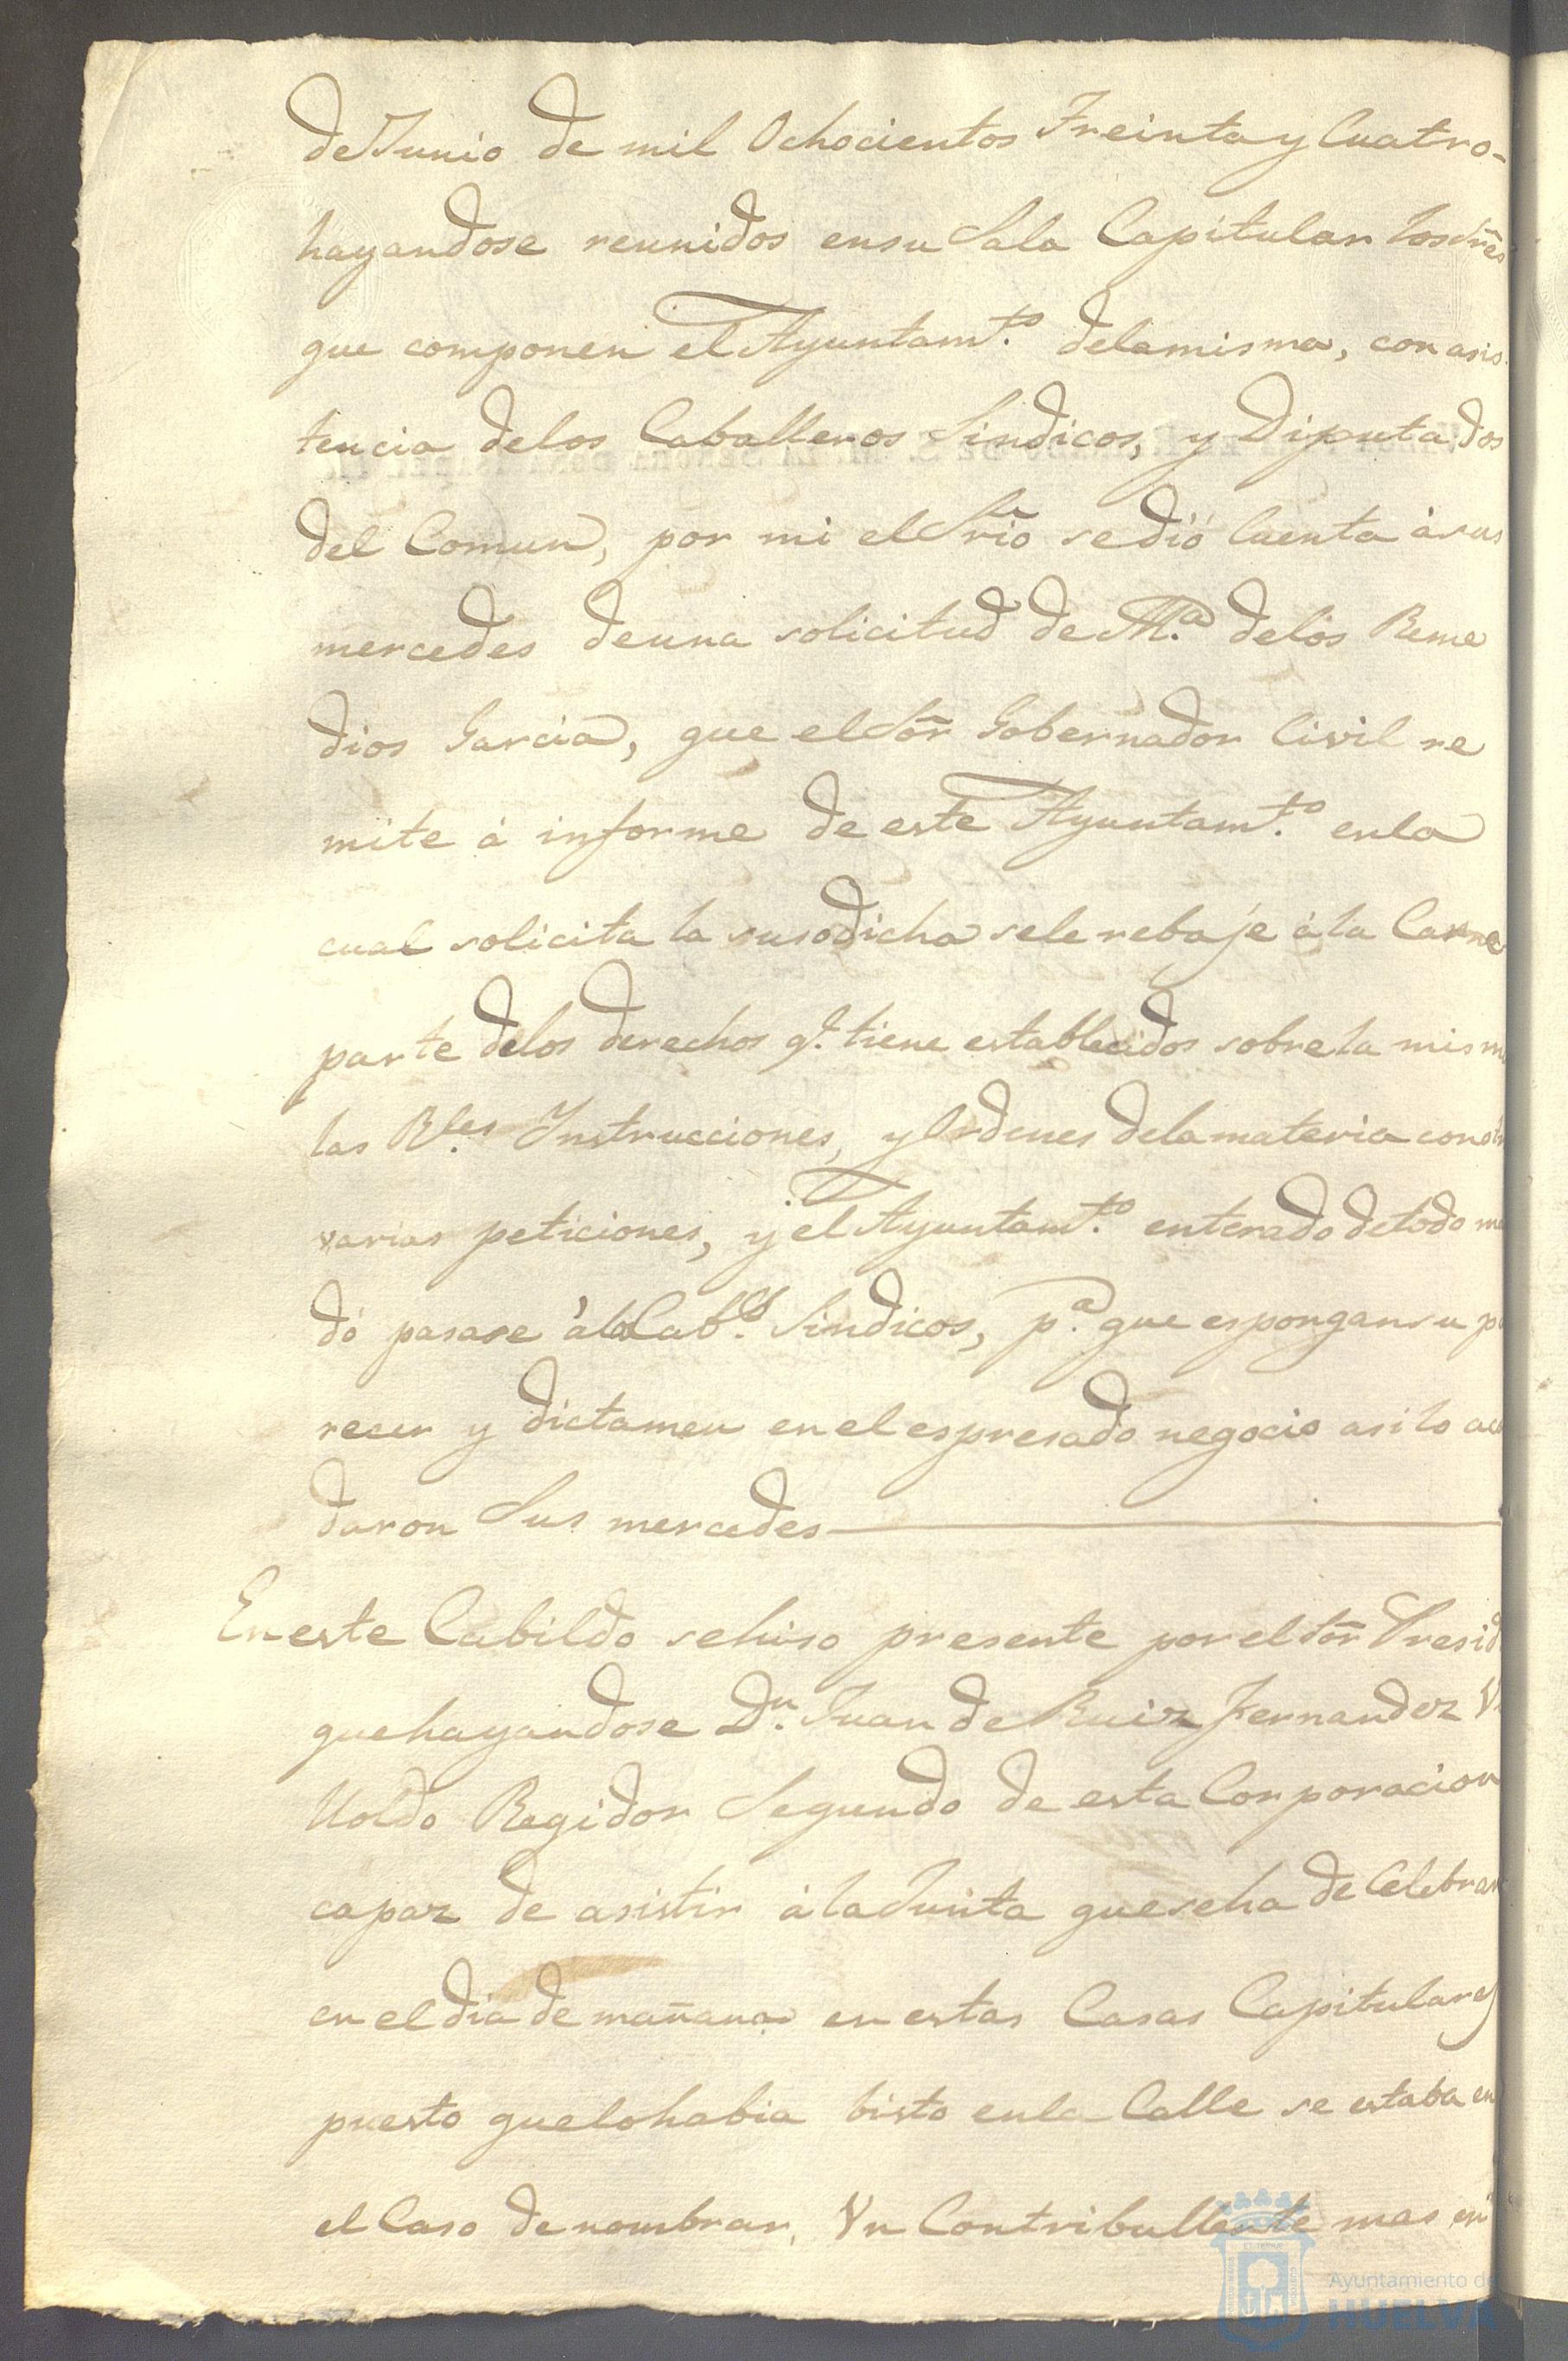 de Junio de mil Ochocientos Treinta y Cuatro-
hayandose reunidos en su Sala Capitular los Sres
que componen el Ayuntamto. de la misma, con asis
tencia de los Caballeros Sindicos, y Diputados
del Comun, por mi el Srio se dió Cuenta à sus
mercedes de una solicitud de Ma. de los Reme
dios Garcia, que el Sor Gobernador Civil re
mite á informe de este Ayuntamto. en la
cual solicita la susodicha se le rebaje á la Carne
parte de los derechos q.e tiene establecidos sobre la misma
las Rles. Instrucciones, y Ordenes de la materia con
varias peticiones, y el Ayuntamto. enterado de todo
dó pasase á los Cabs. Sindicos, pa. que espongan su
recer y dictamen en el espresado negocio asi lo
daron Sus mercedes
En este Cabildo se hiso presente por el Sor Presid
que hayandose Dn. Juan de Ruiz Fernandez
Regidor Segundo de esta Corporacion
capaz de asistir á la Junta que se ha de Celebrar
en el dia de mañana en estas Casas Capitulares
puesto que lo habia bisto en la Calle se estaba en
el Caso de nombrar, Un Contribullente mas en
Ayuntamiento de
HUELVA